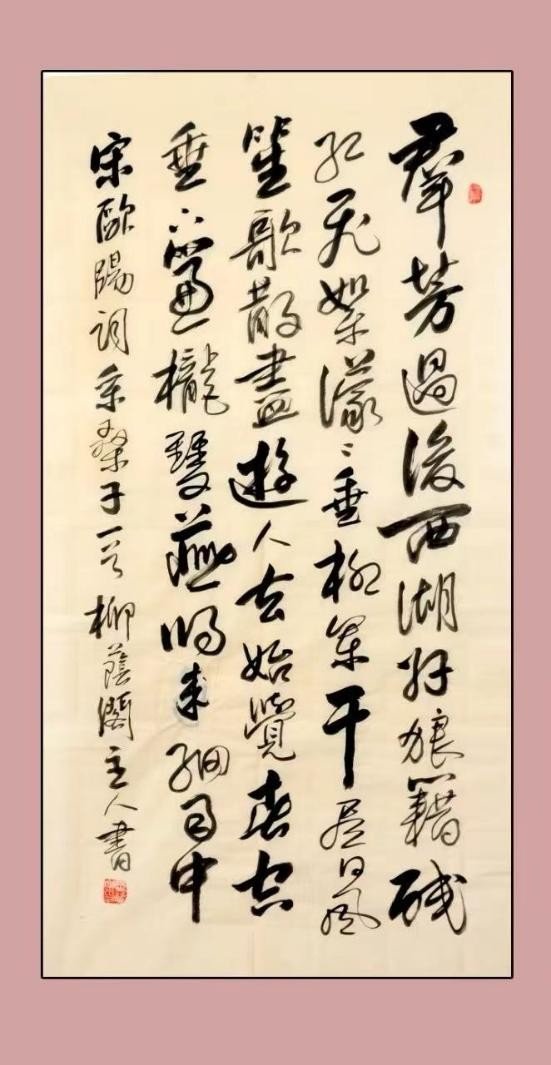 羣芳過後西湖好狼籍殘
紅飛絮濛〻垂柳闌干盡日風
笙歌散盡遊人去始覺春空
垂下簾櫳雙燕歸來細雨中
宋歐陽詞采桑子一首柳蔭閣主人書